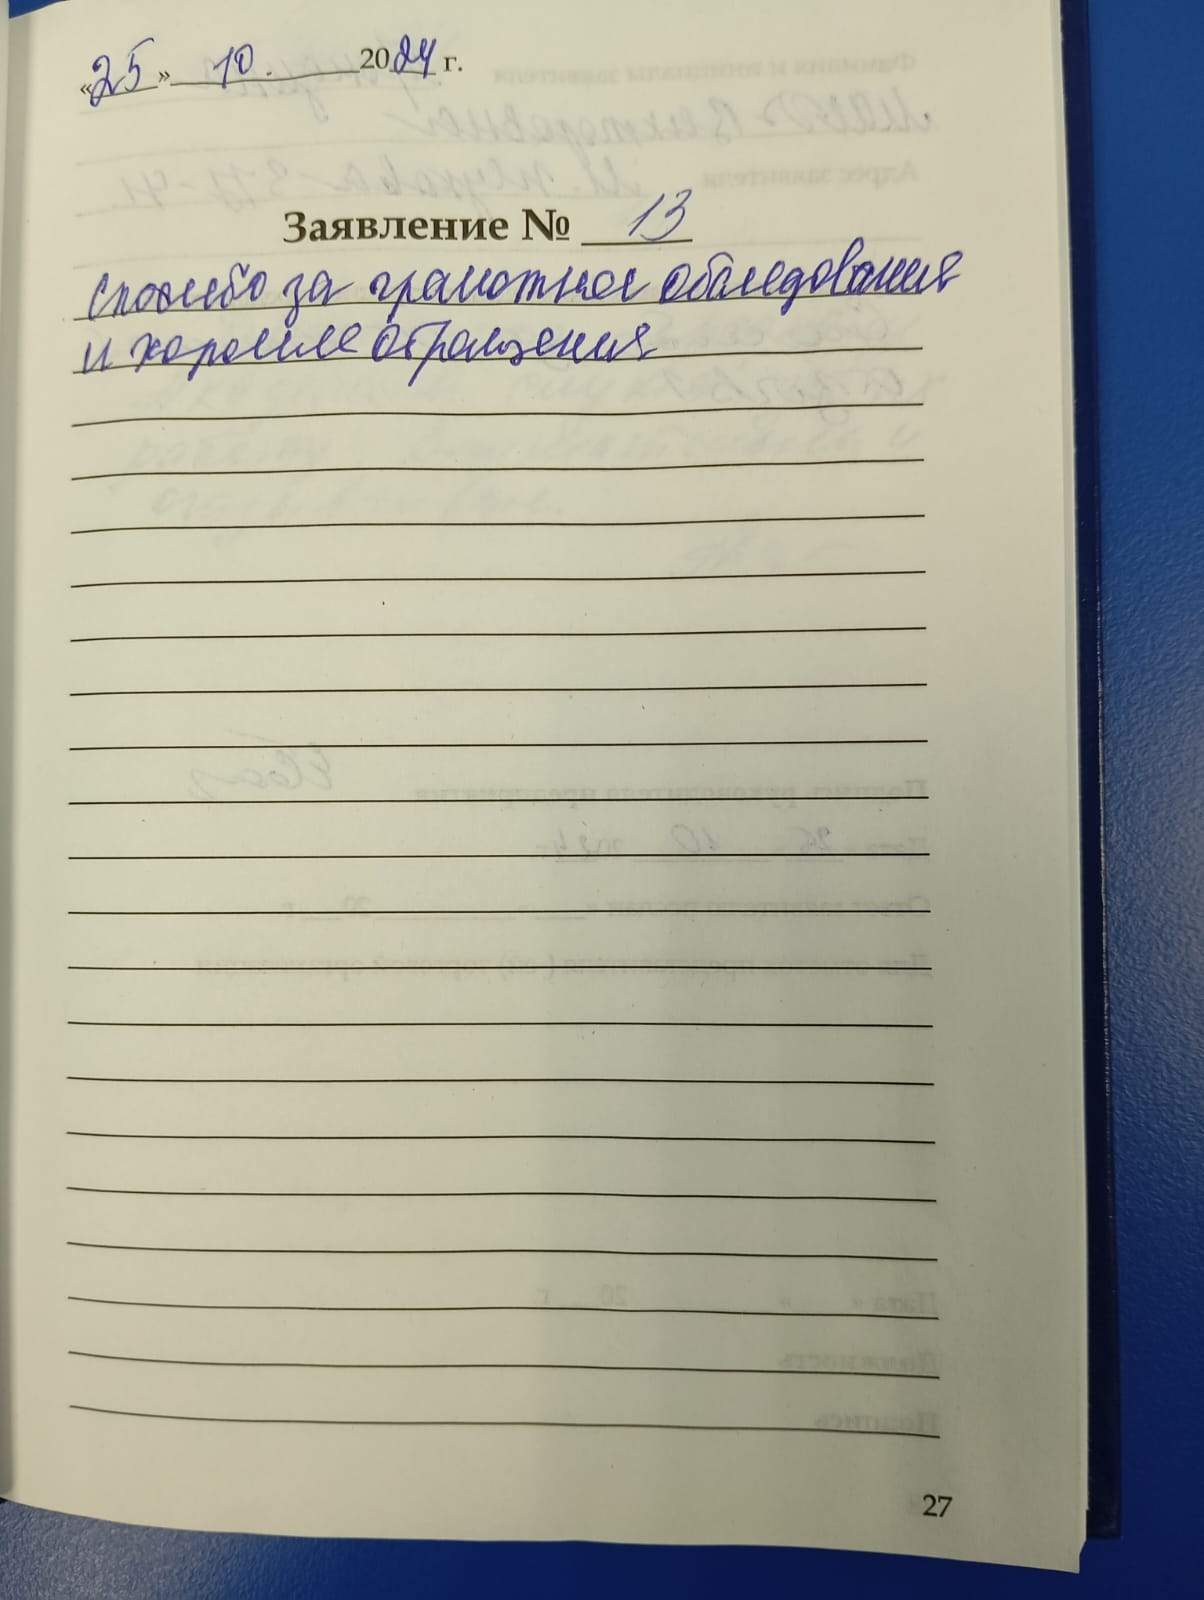 «25» 10. 2024 г.
Заявление № 13
спосибо за грамотное обследования
и хорошее обращения
27